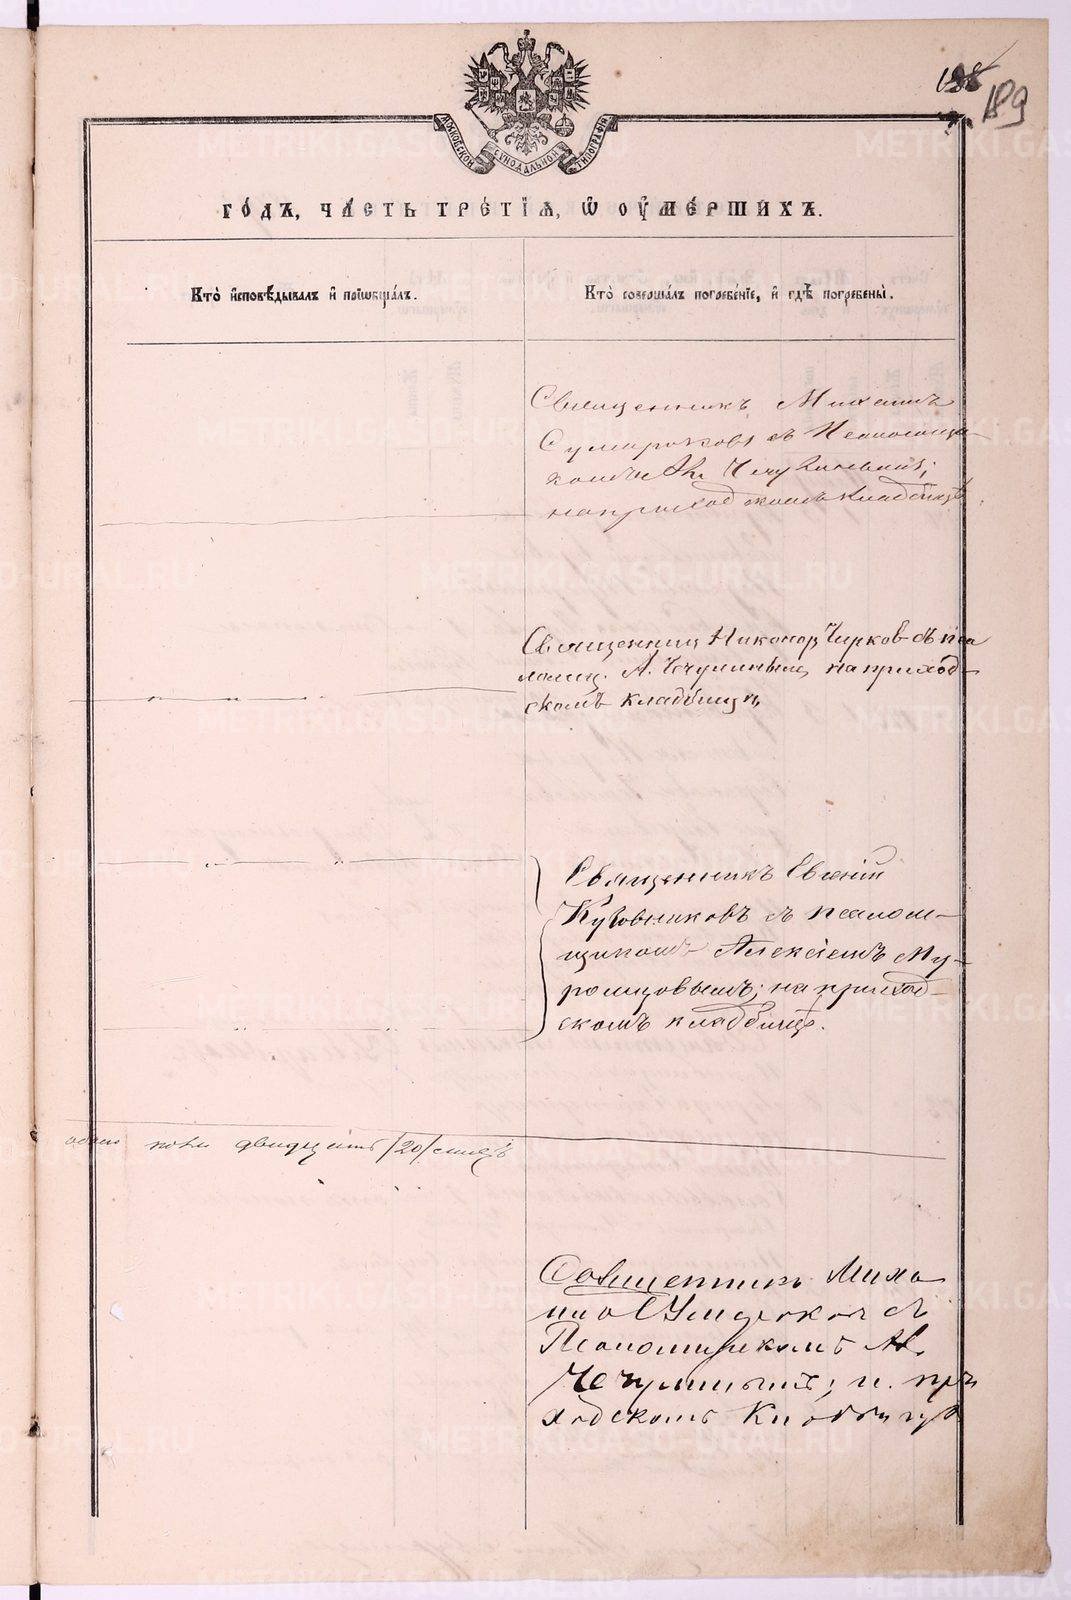 188
189
МОСКОВСКОЙ СѴНОДАЛЬНОЙ ТИПОГРАФІИ
ГО́ДЪ, ЧА́СТЬ ТРЕ́ТІЯ, Ѡ҆ ОУ҆МЕ́РШИХЪ.
Кто̀ и҆сповѣ́дывалъ и҆ пріѡбща́лъ.
Кто̀ соверша́лъ погребе́ніе, и҆ гдѣ̀ погребены̀.
Священникъ Михаилъ
Сумароковъ съ Псаломщи-
комъ Ал. Чечулинымъ;
на приходскомъ кладбищѣ
Священник Никонор Чирков съ пса
ломщ. А. Чечулиным, на приход-
скомъ кладбищѣ
Священникъ Евгеній
Кузовниковъ съ псалом-
щикомъ Алексѣемъ Му-
ромцовымъ; на приход-
скомъ кладбищѣ.
обоего пола двадцать /20/
Священникъ Миха
илъ Сумароков съ
Псаломщикомъ Ал.
Чечулинымъ; н. при
ходскомъ Кладбищѣ
METRIKI.GASO-URAL.RU